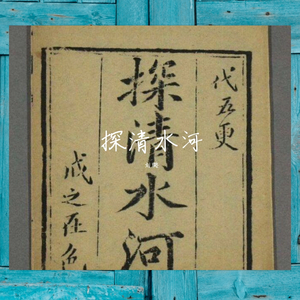 代五更
探清水河
戒之在色
探清水河